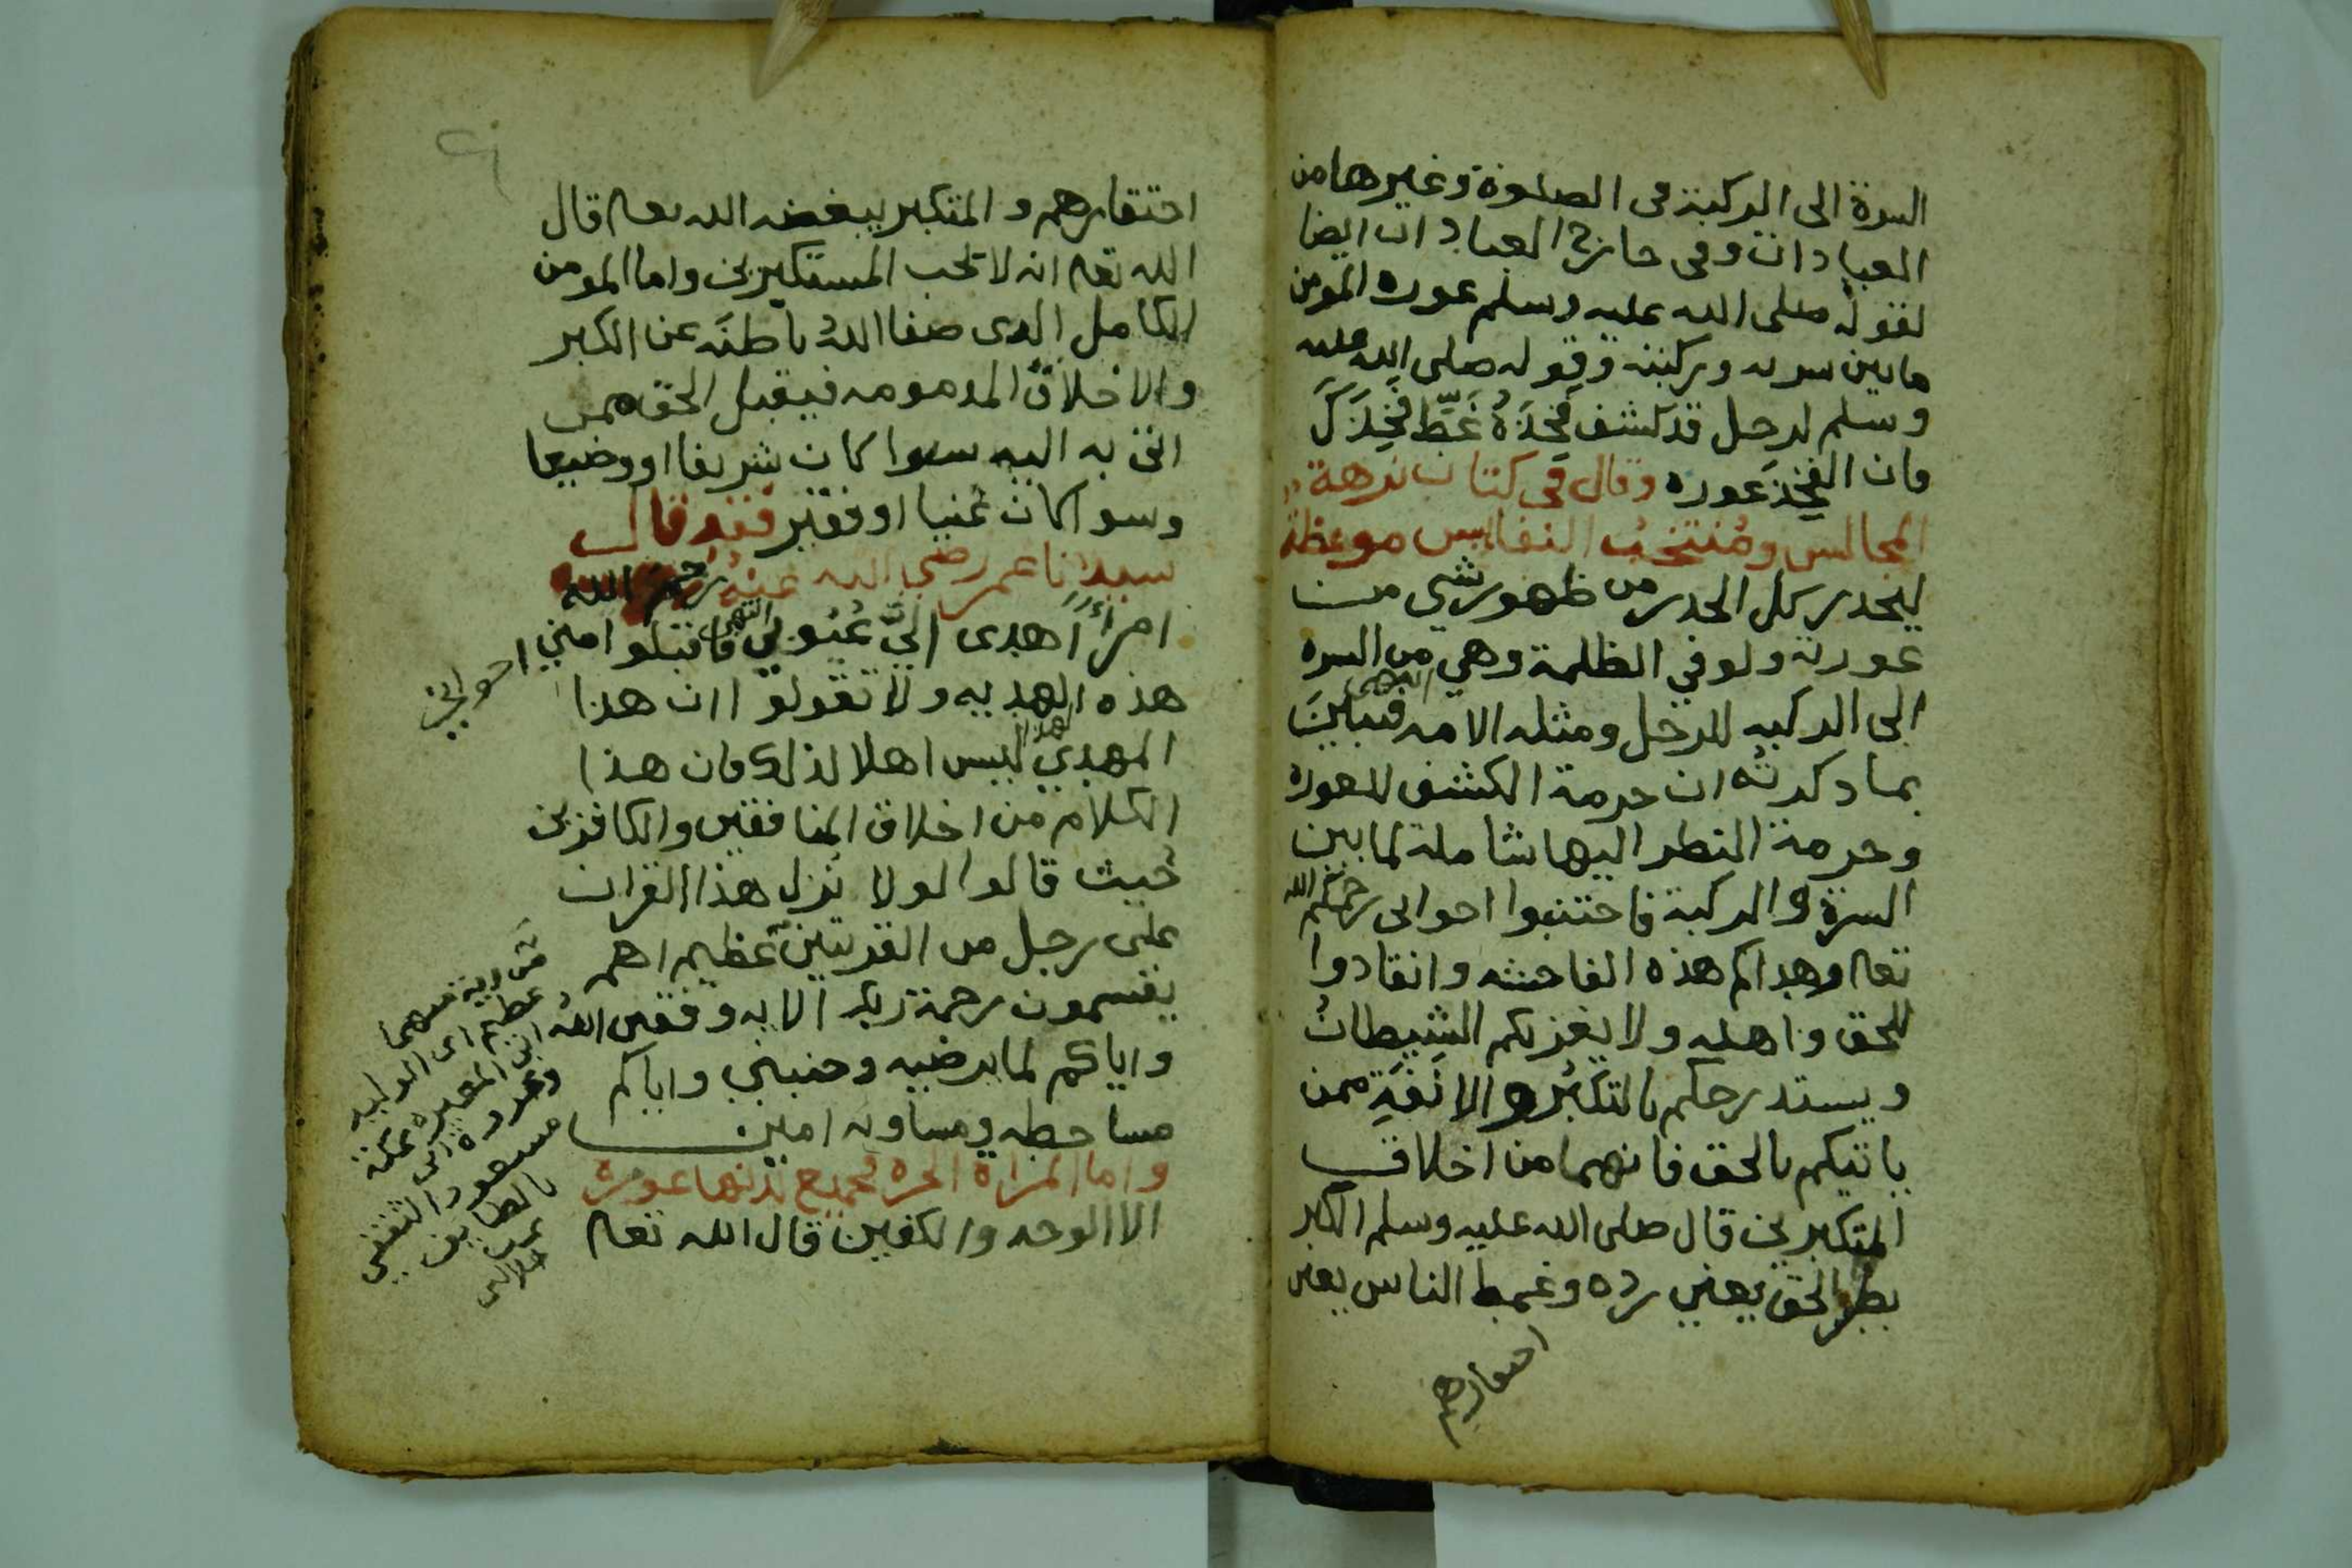 السرة الى الركبة فى الصلوة وغيرها من
العبادات وفى خارج العبادات ايضا
لقوله صلى الله عليه وسلم عوره المومن
مابين سرته وركبته وقوله صلى الله عليه
وسلم لرجل قد كشف فَخِذَهُ غَطِّ فَخِذَكَ
فان الفَخِذَ عوره وقال فى كتاب نزهة
المجالس ومُنتخبُ النفايس موعظة
ليحدر كل الحدر من ظهور شي من
عورته ولو في الظلمة وهي من السره
الى الركبه للرجل ومثله الامه انتهى فتباينَ
بما دكرته ان حرمة الكشف للعوره
وحرمة النطر اليها شاملة لما بين
السرة والركبة فاجتنبوا اخوانى رحمكم الله
تعا وهداكم هذه الفاحشه وانقادوا
للحق واهله ولا يغرنكم الشيطانُ
ويستدرجكم بالتكبُرِ والانَفَةِ ممن
ياتيكم بالحق فانهما من اخلاق
المتكبرين قال صلى الله عليه وسلم الكبر
بطر الحق يعني رده وغمط الناس يعنى
احتقارهم
احتقارهم والمتكبر يبغضه الله تعا قال
الله تعا انه لا يحب المستكبرين واما المومن
الكامل الدى صفا اللهُ باطنَه عن الكبر
والاخلاق المدمومه فيقبل الحق ممن
اتى به اليه سوا كان شريفا او وضيعا
وسوا كان غنيا او فقير فقد قال
سيدنا عمر رضي الله عنهُ رحم الله
امرأً اهدى اليَّ عُيُوبي انتهى فاقبلوا امني اخواني
هذه الهديه ولا تقولو اان هذا
المهدي لهذا ليس اهلا لذلك فان هذا
الكلام من اخلاق المنافقين والكافرين
حيث قالوا لولا نُزل هذا القران
على رجل من القريتين عظيم اهم
يقسمون رحمة ربك الايه وفقنى اللهُ
واياكم لما يرضيه وجنبني واياكم
مساخطه ومساويه امين
واما المراة الحره فجميع بدنها عورة
الا الوجه والكفين قال الله تعا
عظيم اى الوليد
ابن المغيره بمكة
وعروه ابن
مسعود الثقفي
بالطايف
جلالين